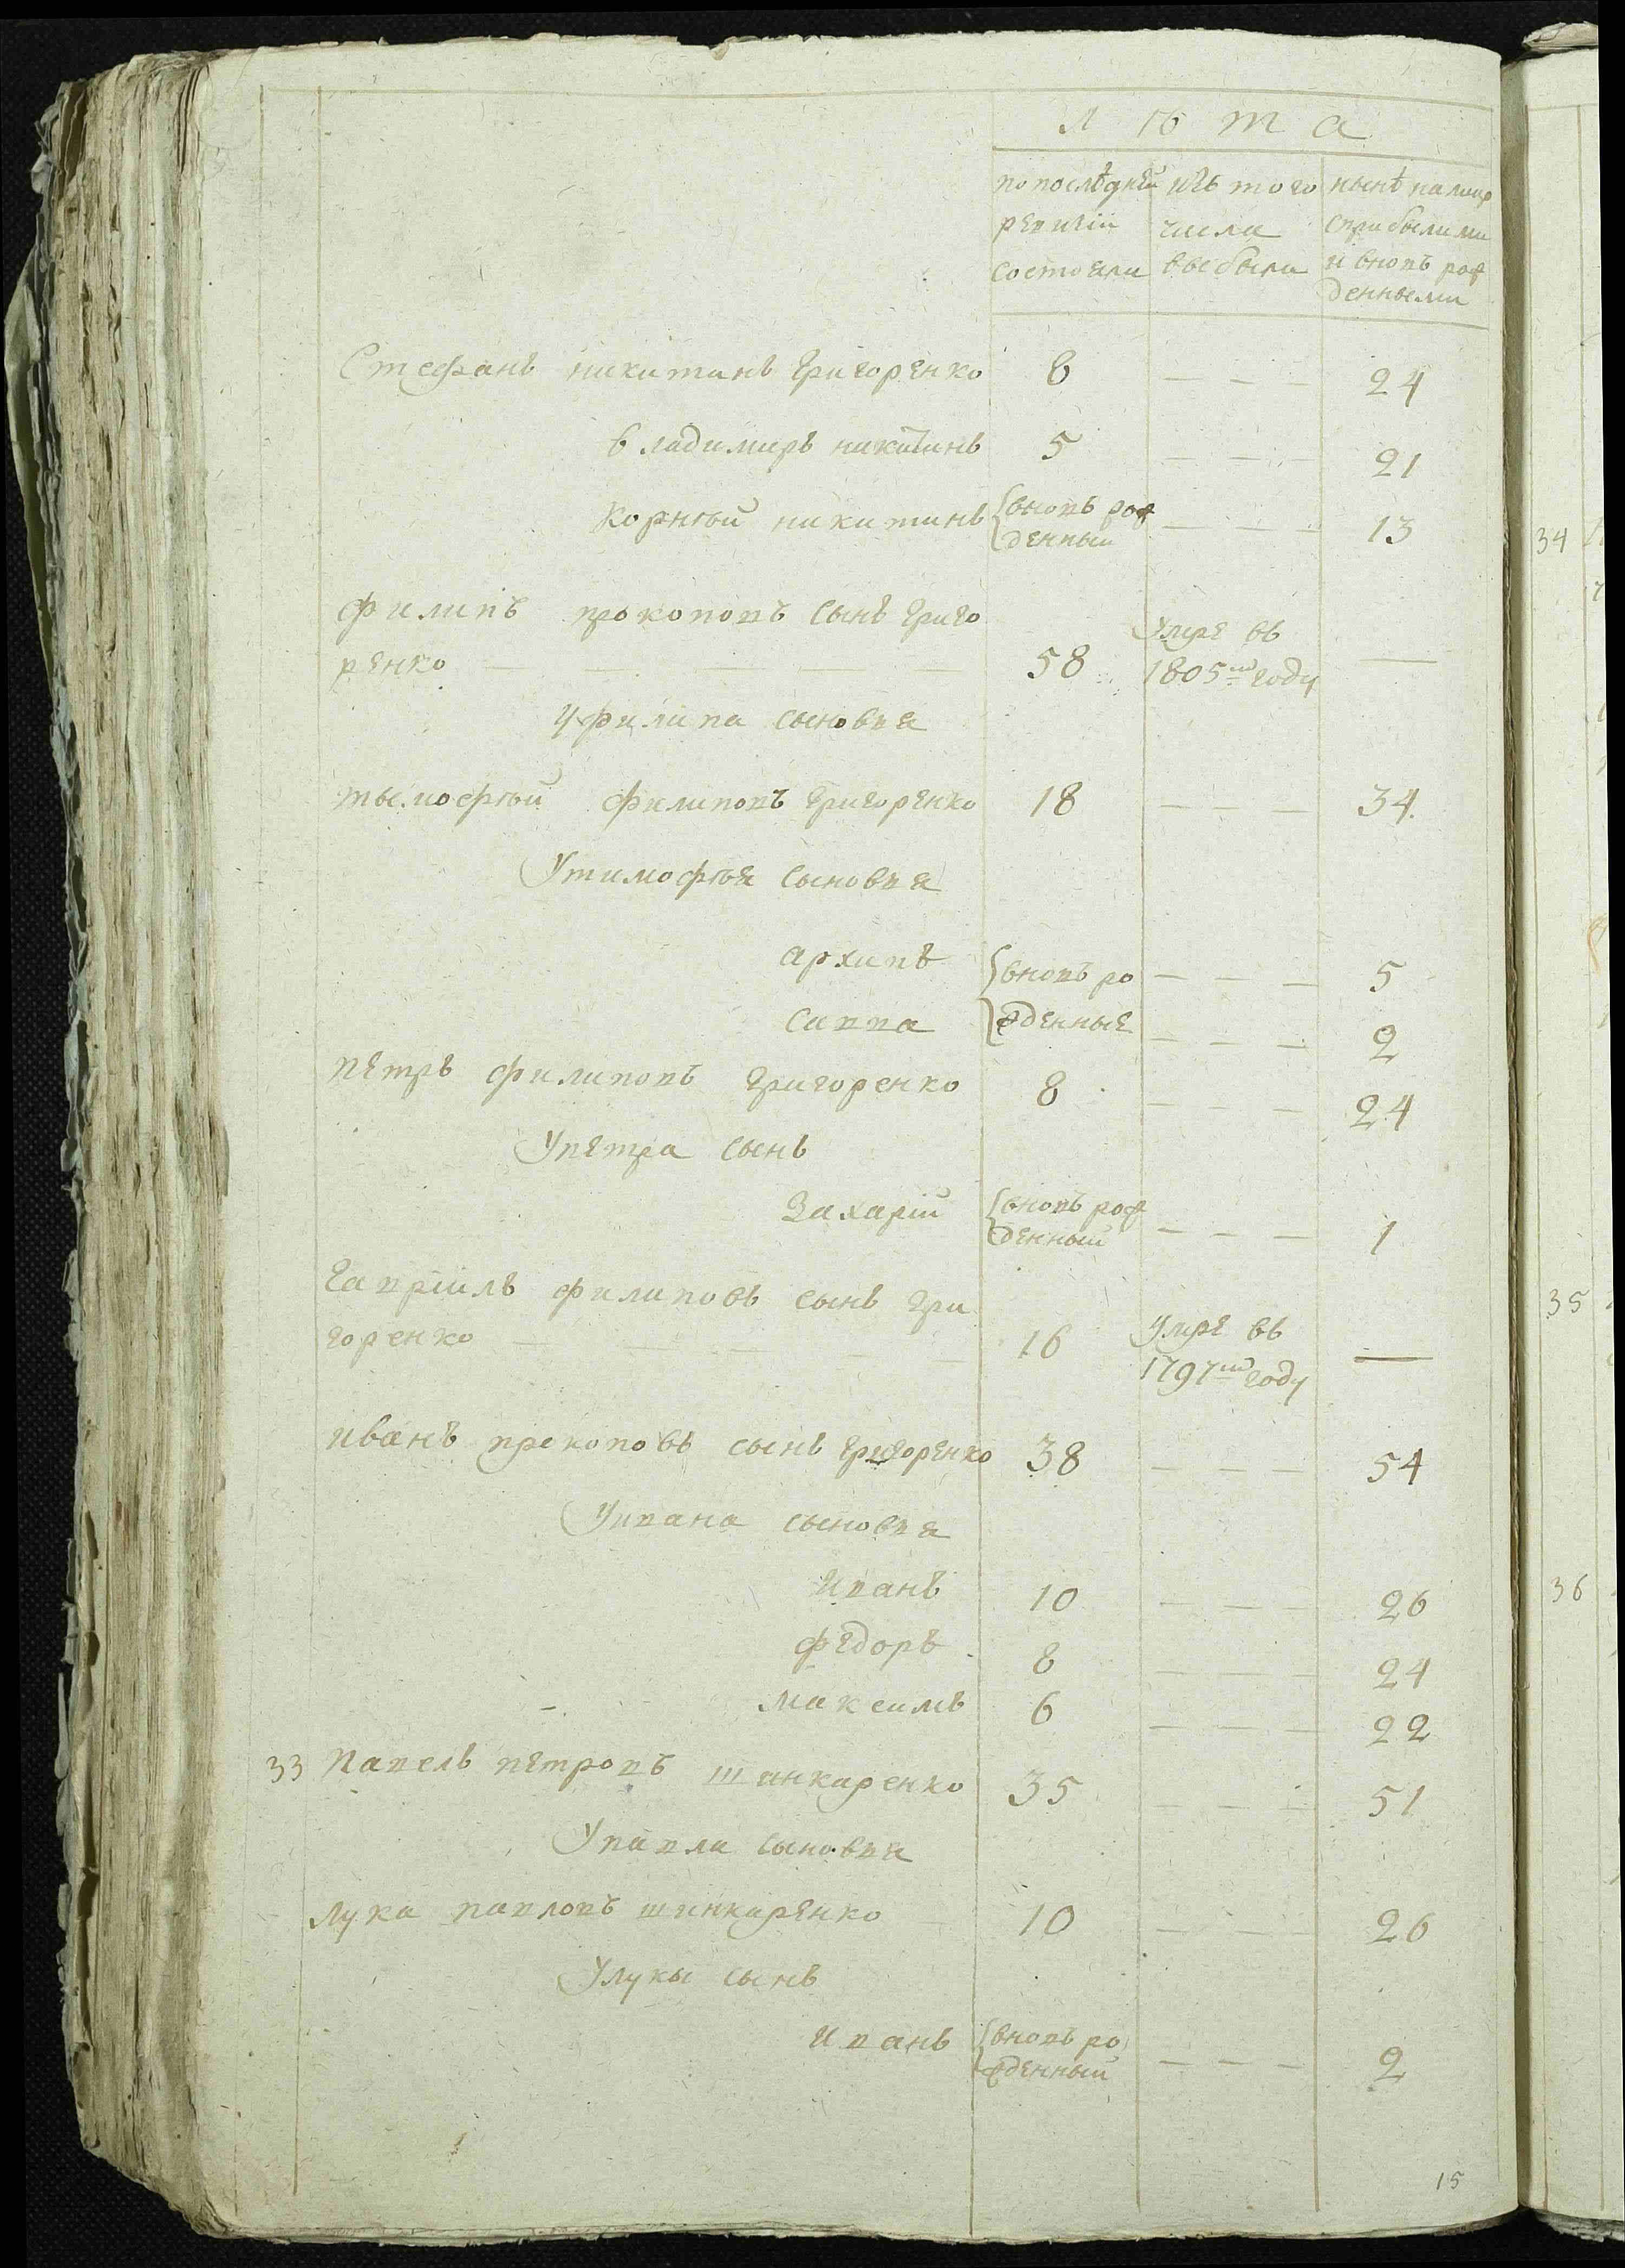 Лѣта
по послѣдней
ревизіи
состояли
изъ того
числа
выбыли
нынѣ на лицо
с прибылими
и вновъ рож
денными
Стефанъ никитинъ григоренко 8 — — — 24
владимиръ никитинъ 5 — — — 21
Корнѣй никитинъ вновъ рож
денный — — — 13
филипъ прокоповъ сынъ григо
ренко — — — — 58 Умре въ
1805мъ году —
У филипа сыновья
тымофѣй филиповъ григоренко 18 — — — 34
У тимофѣя сыновья
архипъ вновъ ро — — — 5
савва жденные — — — 2
петръ филиповъ григоренко 8 — — — 24
У петра сынъ
Захарій вновъ рож
денный — — — 1
гавріилъ филиповъ сынъ гри
горенко — — — — 16 Умре въ
1797мъ году —
иванъ прокоповъ сынъ григоренко 38 — — — 54
У ивана сыновья
иванъ 10 — — — 26
федоръ 8 — — — 24
максимъ 6 — — — 22
33 павелъ петровъ шинкаренко 35 — — — 51
У павла сыновья
лука павловъ шинкаренко 10 — — — 26
У лукы сынъ
иванъ вновъ ро
жденный — — — 2
15
34
35
36